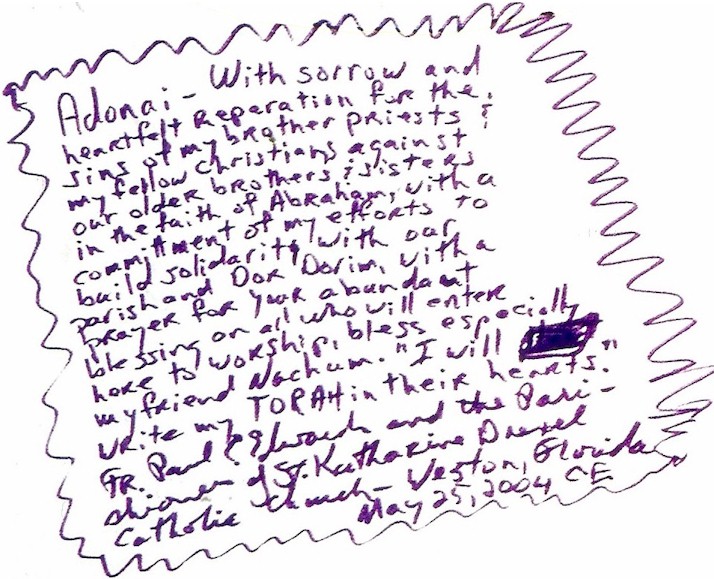 Adonai - With sorrow and
heartfelt reparation for the
sins of my brother priests &
my fellow Christians against
our older brothers & sisters
in the faith of Abraham, with a
commitment of my efforts to
build solidarity with our
parish and Dor Dorim, with a
prayer for your abundant
blessing on all who will enter
here to worship, bless especially
my friend Nachum. "I will
write my TORAH in their hearts."
Fr. Paul Edwards and the Pari-
shioners of St. Katharine Drexel
Catholic Church - Weston, Florida
May 25, 2004 CE